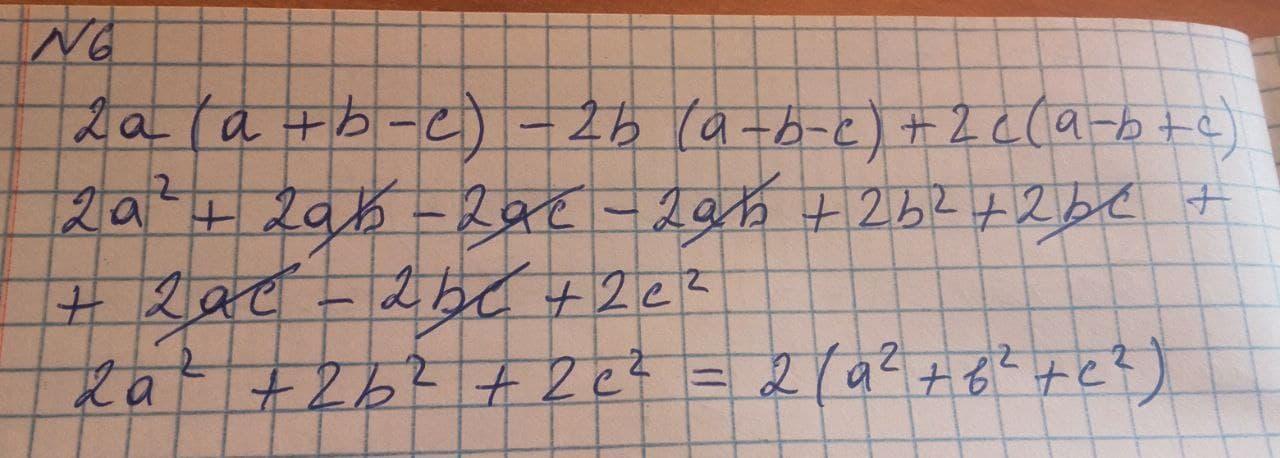 N6
2a (a + b - c) - 2b (a - b - c) + 2c (a - b + c)
2a² + 2ab - 2ac - 2ab + 2b² + 2bc +
+ 2ac - 2bc + 2c²
2a² + 2b² + 2c² = 2 (a² + b² + c²)